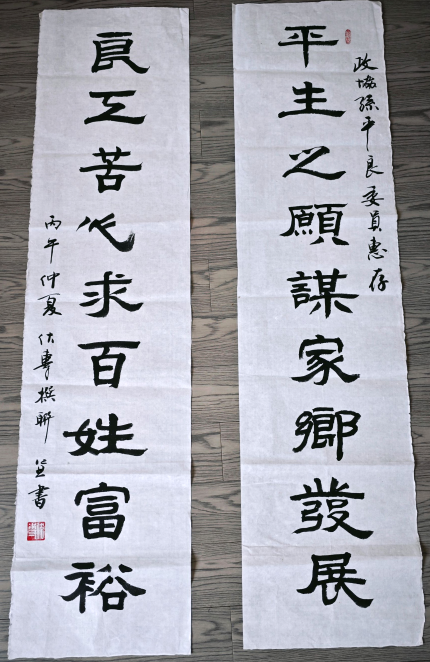 平生之願謀家鄉發展
政協孫平良委員惠存
良工苦心求百姓富裕
丙午仲夏 專撰聯 並書